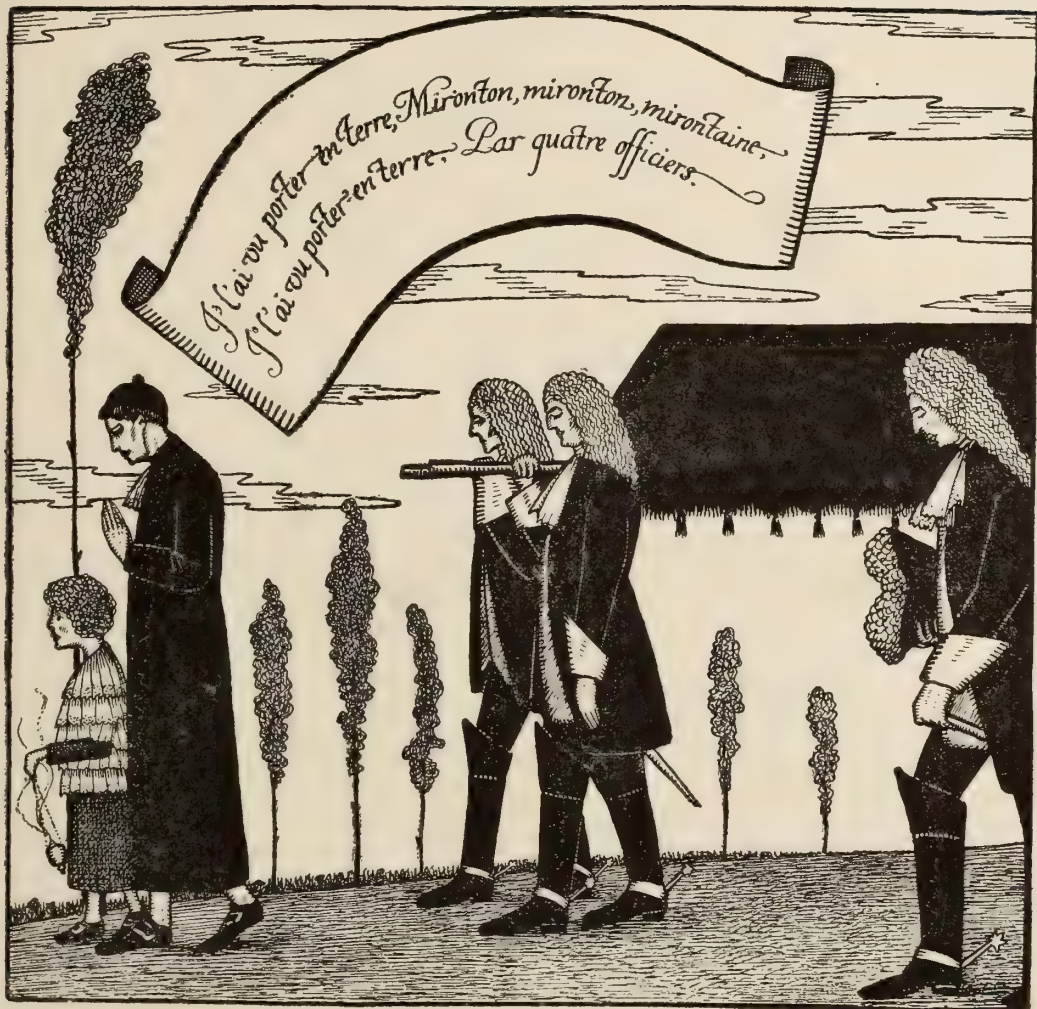 J' l'ai vu porter en terre, Mironton, mironton, mirontaine,
J' l'ai vu porter en terre, Par quatre officiers.